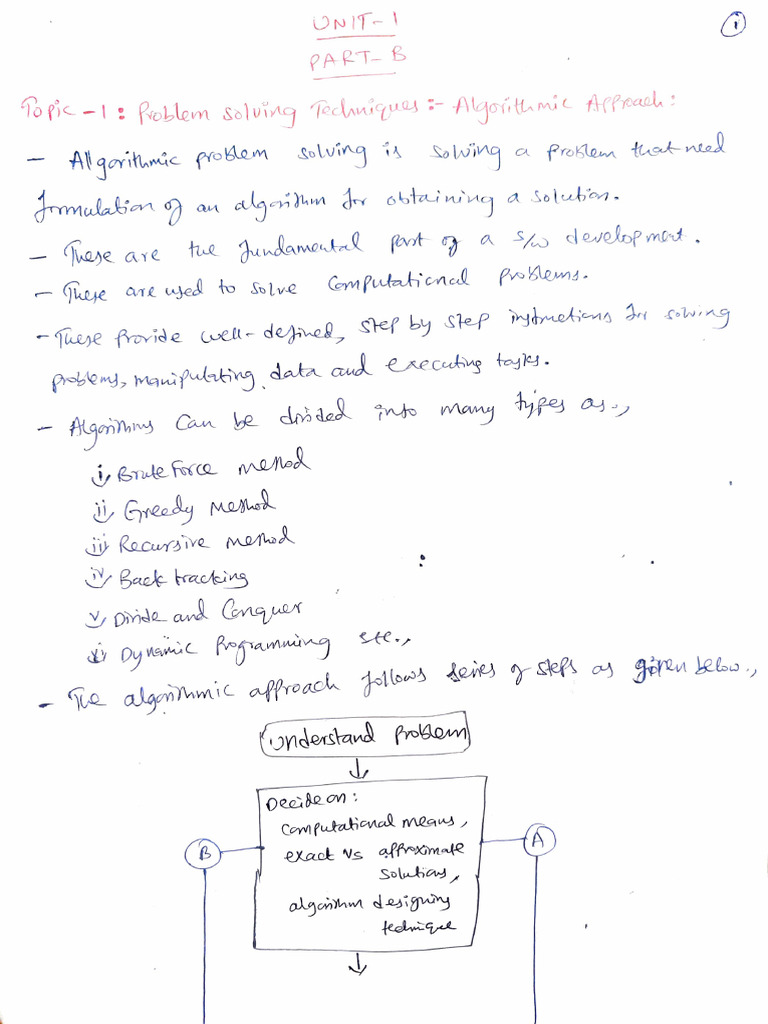 UNIT-1
1
PART-B
Topic-1: Problem Solving Techniques:- Algorithmic Approach:
- Allgorithmic problem solving is solving a problem that need
formulation of an algorithm for obtaining a solution.
- These are the fundamental part of a s/w development.
- These are used to solve computational problems.
- These Provide well-defined, step by step instructions for solving
problems, manipulating data and executing tasks.
- Algorithms can be divided into many types as.,
i) Brute Force method
ii) Greedy Method
iii) Recursive method
iv) Back tracking
v) Divide and Conquer
vi) Dynamic Programming etc.,
- The algorithmic approach follows series of steps as given below.,
Understand Problem
Decide on:
Computational means,
exact vs approximate
solutions,
algorithm designing
technique
B
A